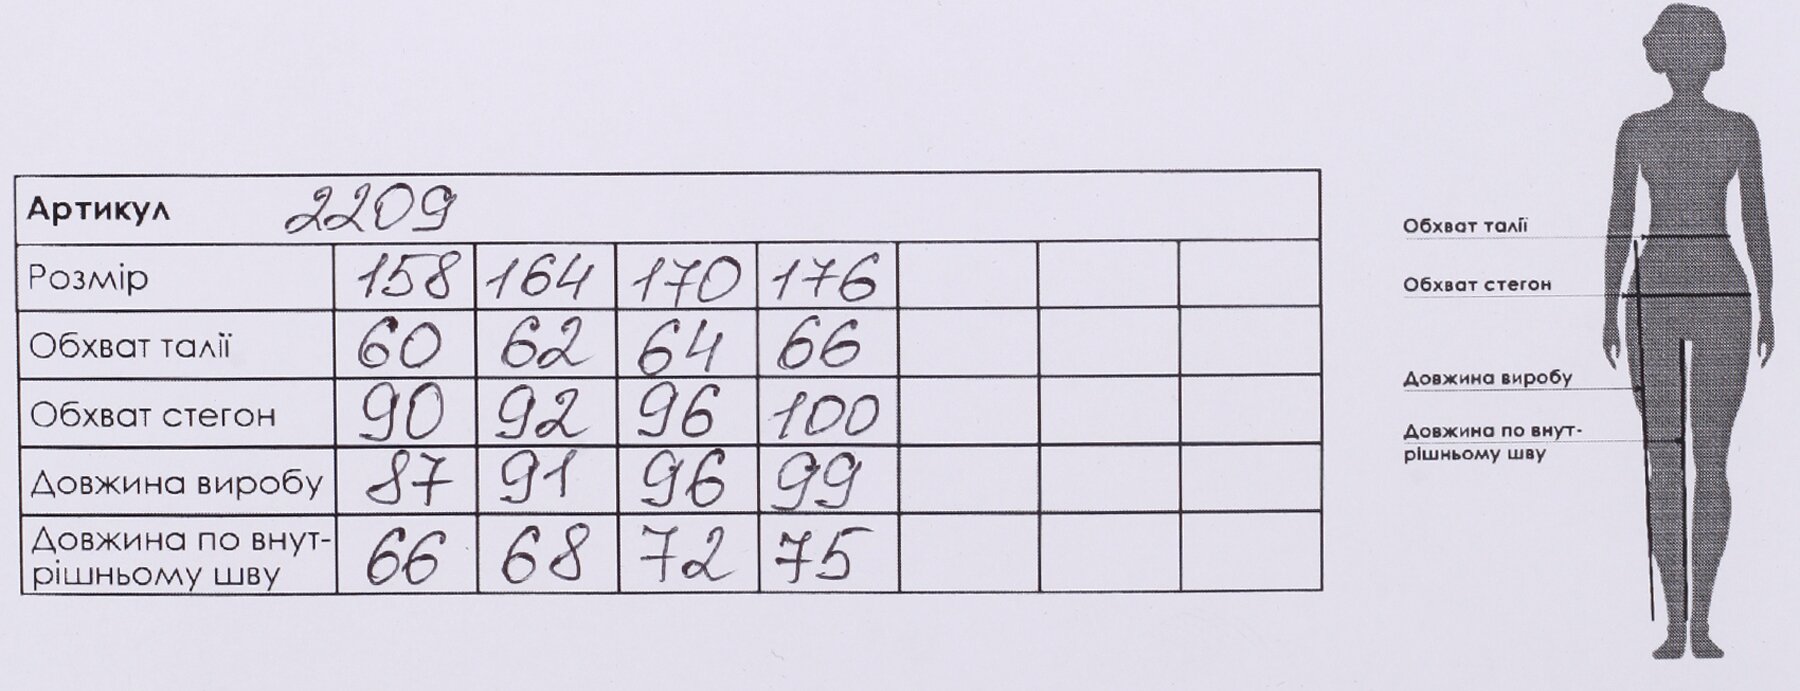 Артикул 2209
Розмір 158 164 170 176
Обхват талії 60 62 64 66
Обхват стегон 90 92 96 100
Довжина виробу 87 91 96 99
Довжина по внут-
рішньому шву 66 68 72 75
Обхват талії
Обхват стегон
Довжина виробу
Довжина по внут-
рішньому шву